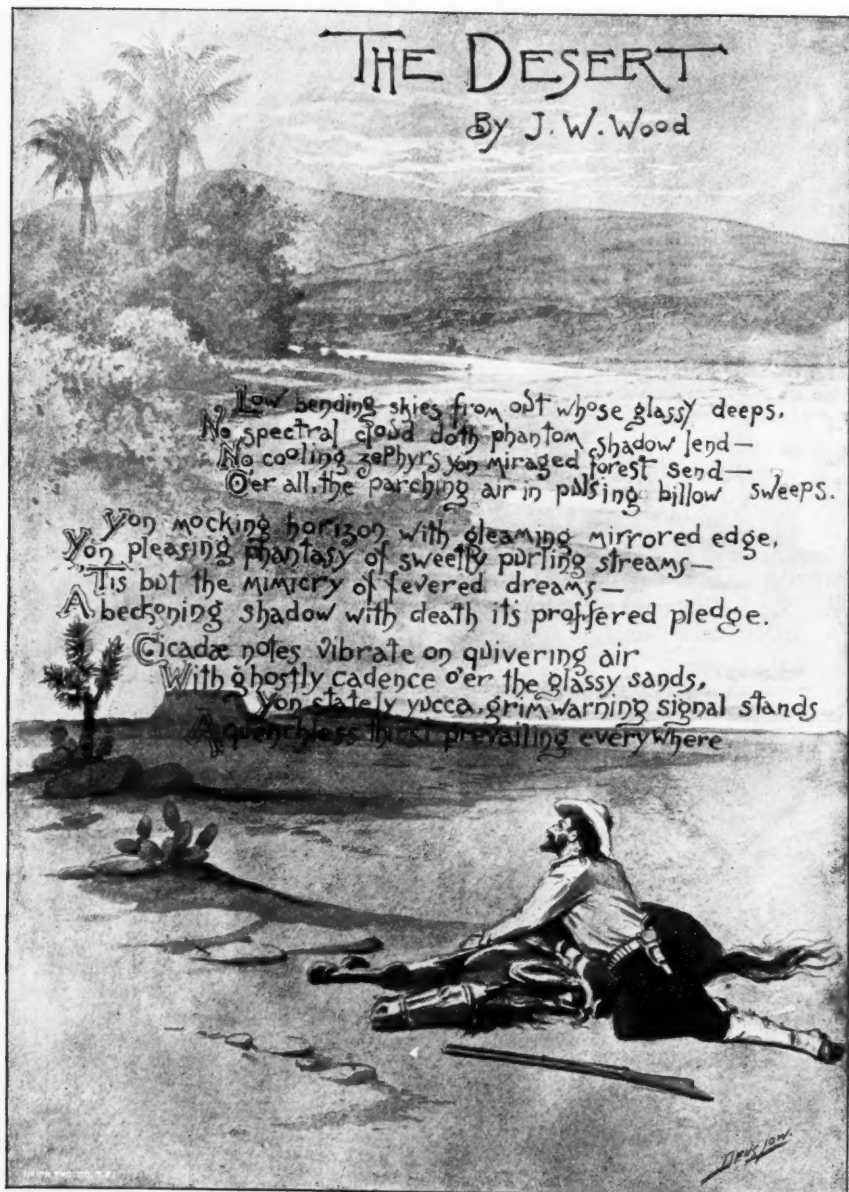 THE DESERT
By J. W. Wood
Low bending skies from out whose glassy deeps,
No spectral cloud doth phantom shadow lend—
No cooling zephyrs yon miraged forest send—
O'er all, the parching air in pulsing billow sweeps.
Yon mocking horizon with gleaming mirrored edge,
Yon pleasing phantasy of sweetly purling streams—
'Tis but the mimicry of fevered dreams—
A beckoning shadow with death its proffered pledge.
Cicadæ notes vibrate on quivering air
With ghostly cadence o'er the glassy sands,
Yon stately yucca, grim warning signal stands
A quenchless thirst prevailing everywhere
DENSLOW.
UNION ENG. CO. S.F.